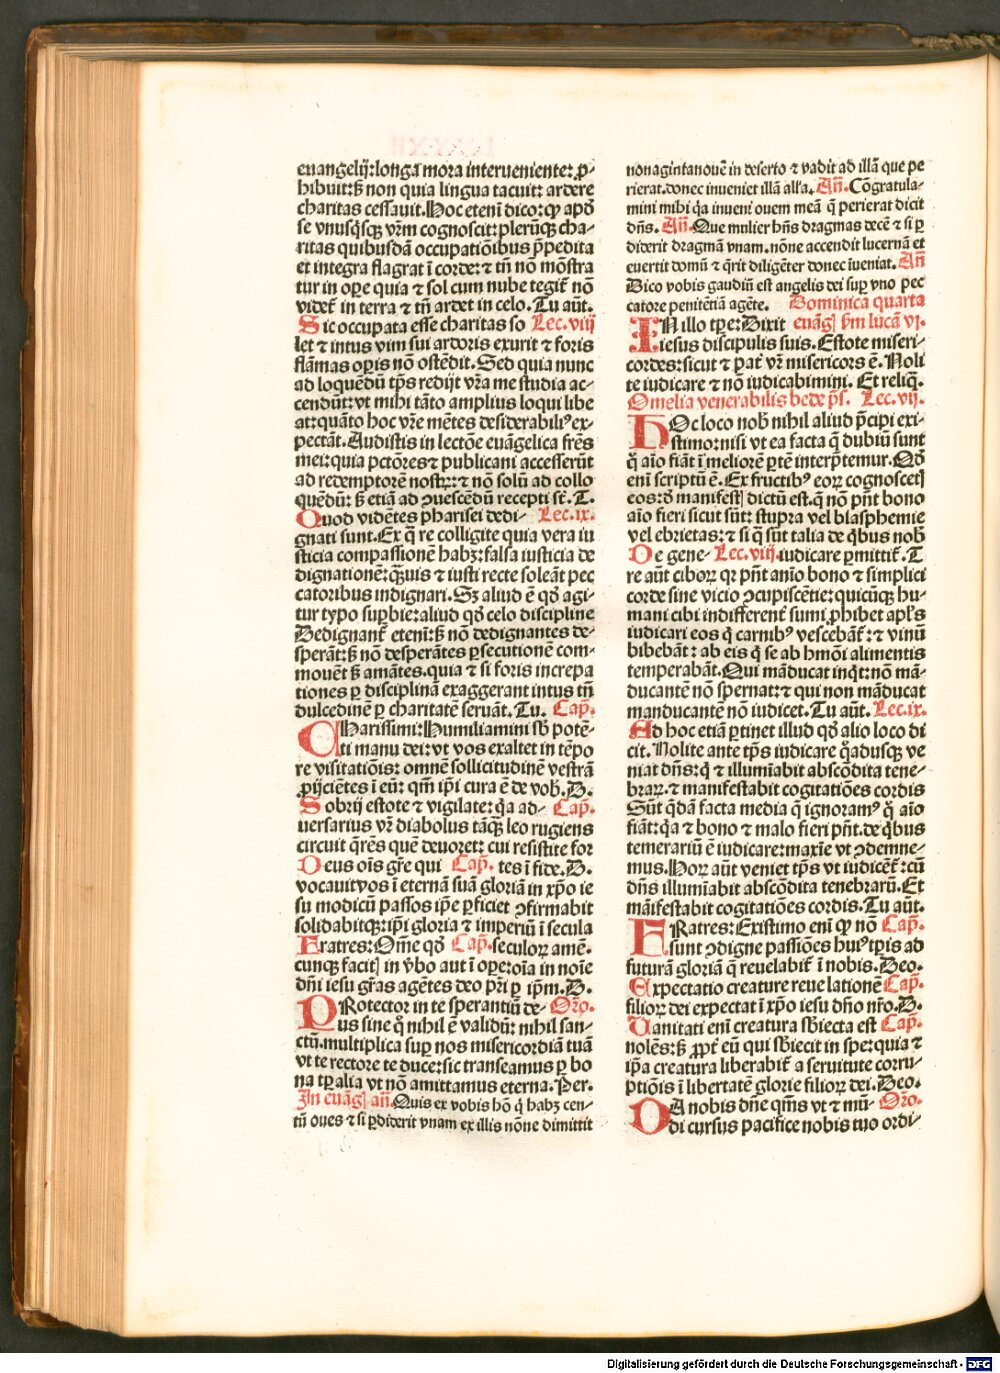 euangelij: longa mora interueniente: ꝓ-
hibuit: sꝫ non quia lingua tacuit: ardere
charitas cessauit. Hoc eteni dico: qꝫ apđ
se vnusqꝫsqꝫ vr̃m cognoscit: plerũqꝫ cha-
ritas quibusdã occupatiõibus p̃pedita
et integra flagrat ĩ corde: ⁊ tñ nõ mõstra
tur in oꝑe quia ⁊ sol cum nube tegit̃ nõ
videt̃ in terra ⁊ tñ ardet in celo. Tu aũt.
Sic occupata esse charitas so Lec. viij
let ⁊ intus vim sui ardoris exurit ⁊ foris
flãmas oꝑis nõ ostẽdit. Sed quia nunc
ad loquẽdũ tp̃s redijt vr̃a me studia ac-
cendũt: vt mihi tãto amplius loqui libe
at: quãto hoc vr̃e mẽtes desiderabiliꝰ ex-
pectãt. Audistis in lectõe euãgelica fr̃es
mei: quia pctõres ⁊ publicani accesserũt
ad redemptorẽ nostꝝ: ⁊ nõ solũ ad collo
quẽdũ: sꝫ etiã ad ꝯuescẽdũ recepti st̃. T.
Quod vidẽtes pharisei dedi- Lec. ix.
gnati sunt. Ex q̃ re colligite quia vera iu
sticia compassionẽ habꝫ: falsa iusticia de
dignationẽ: q̃uis ⁊ iusti recte soleãt pec
catoribus indignari. Sꝫ aliud ẽ qđ agi
tur typo suꝑbie: aliud qđ celo discipline
Dedignant̃ eteni: sꝫ nõ dedignantes de-
sperãt: sꝫ nõ desperãtes ꝑsecutionẽ com-
mouẽt sꝫ amãtes. quia ⁊ si foris increpa
tiones ꝑ disciplinã exaggerant intus tñ
dulcedinẽ ꝑ charitatẽ seruãt. Tu. Cap̃.
CHarissimi: Humiliamini sb̃ potẽ-
ti manu dei: vt vos exaltet in tẽpo
re visitatiõis: omnẽ sollicitudinẽ vestrã
ꝓijcientes ĩ eũ: qm̃ ip̃i cura ẽ de vob̃. D.
Sobrij estote ⁊ vigilate: q̃a ad- Cap̃.
uersarius vr̃ diabolus tãqꝫ leo rugiens
circuit q̃rẽs quẽ deuoret: cui resistite for
Deus oĩs gr̃e qui Cap̃. tes ĩ fide. D.
vocauit vos ĩ eternã suã gloriã in xp̃o ie
su modicũ passos ip̃e ꝑficiet ꝯfirmabit
solidabitqꝫ: ip̃i gloria ⁊ imperiũ ĩ secula
Fratres: Om̃e qđ Cap̃. seculoꝝ amẽ.
cunqꝫ facitꝭ in ṽbo aut ĩ oꝑe: oĩa in noĩe
dñi iesu gr̃as agẽtes deo pr̃i ꝑ ip̃m. D.
PRotector in te sperantiũ de- Or̃o.
us sine q̊ nihil ẽ validũ: nihil san-
ctũ. multiplica suꝑ nos misericordiã tuã
vt te rectore te duce: sic transeamus ꝑ bo
na tꝑalia vt nõ amittamus eterna. Per.
In euãgꝭ añ. Quis ex vobis hõ q̃ habꝫ cen-
tũ oues ⁊ si ꝑdiderit vnam ex illis nõne dimittit
nonagintanouẽ in deserto ⁊ vadit ad illã que pe
rierat. donec inueniet illã all'a. Añ. Cõgratula-
mini mihi q̃a inueni ouem meã q̃ perierat dicit
dñs. Añ. Que mulier hñs dragmas decẽ ⁊ si ꝑ
diderit dragmã vnam. nõne accendit lucernã et
euertit domũ ⁊ q̃rit diligẽter donec ĩueniat. Añ
Dico vobis gaudiũ est angelis dei suꝑ vno pec
catore penitẽtiã agẽte. Dominica quarta
IN illo tp̃e: Dixit euãgꝭ ẜm lucã vj.
iesus discipulis suis. Estote miseri-
cordes: sicut ⁊ pat̃ vr̃ misericors ẽ. Noli
te iudicare ⁊ nõ iudicabimini. Et reliq̃.
Omelia venerabilis bede p̃s. Lec. vij.
HOc loco nob̃ nihil aliud p̃cipi exi-
stimo: nisi vt ea facta q̃ dubiũ sunt
q̊ aĩo fiãt ĩ meliorẽ ꝑtẽ interp̃temur. Qđ
eni scriptũ ẽ. Ex fructibꝰ eoꝝ cognoscetꝭ
eos: đ manifestꝭ dictũ est. q̃ nõ pñt bono
aĩo fieri sicut sũt: stupra vel blasphemie
vel ebrietas: ⁊ si q̃ sũt talia de q̃bus nob̃
De gene- Lec. viij. iudicare ꝑmittit̃. T.
re aũt ciboꝝ qꝛ pñt aĩo bono ⁊ simplici
corde sine vicio ꝯcupiscẽtie: quicũqꝫ hu-
mani cibi indifferent̃ sumi ꝓhibet apl's
iudicari eos q̃ carnibꝰ vescebãt̃: ⁊ vinũ
bibebãt: ab eis q̃ se ab hmõi alimentis
temperabãt. Qui mãducat inq̃t: nõ mã-
ducantẽ nõ spernat: ⁊ qui non mãducat
manducantẽ nõ iudicet. Tu aũt. Lec. ix.
Ad hoc etiã ꝑtinet illud qđ alio loco di
cit. Nolite ante tp̃s iudicare q̊adusqꝫ ve
niat dñs: q̃ ⁊ illumĩabit abscõdita tene-
braꝝ. ⁊ manifestabit cogitatiões cordis
Sũt q̃dã facta media q̃ ignoramꝰ q̊ aĩo
fiãt: q̃a ⁊ bono ⁊ malo fieri pñt. de q̃bus
temerariũ ẽ iudicare: maxĩe vt ꝯdemne-
mus. Hoꝝ aũt veniet tp̃s vt iudicẽt̃: cũ
dñs illumĩabit abscõdita tenebrarũ. Et
mãifestabit cogitatiões cordis. Tu aũt.
FRatres: Existimo eni qꝫ nõ Cap̃.
sunt ꝯdigne passiões huiꝰ tp̃is ad
futurã gloriã q̃ reuelabit̃ ĩ nobis. Deo.
Expectatio creature reuelationẽ Cap̃.
filioꝝ dei expectat ĩ xp̃o iesu dño nr̃o. D.
Vanitati eni creatura sb̃iecta est Cap̃.
nolẽs: sꝫ ꝓpt̃ eũ qui sb̃iecit in spe: quia ⁊
ip̃a creatura liberabit̃ a seruitute corru-
ptiõis ĩ libertatẽ glorie filioꝝ dei. Deo.
DA nobis dñe q̃m̃s vt ⁊ mũ- Or̃o.
di cursus pacifice nobis tuo ordi-
Digitalisierung gefördert durch die Deutsche Forschungsgemeinschaft - DFG